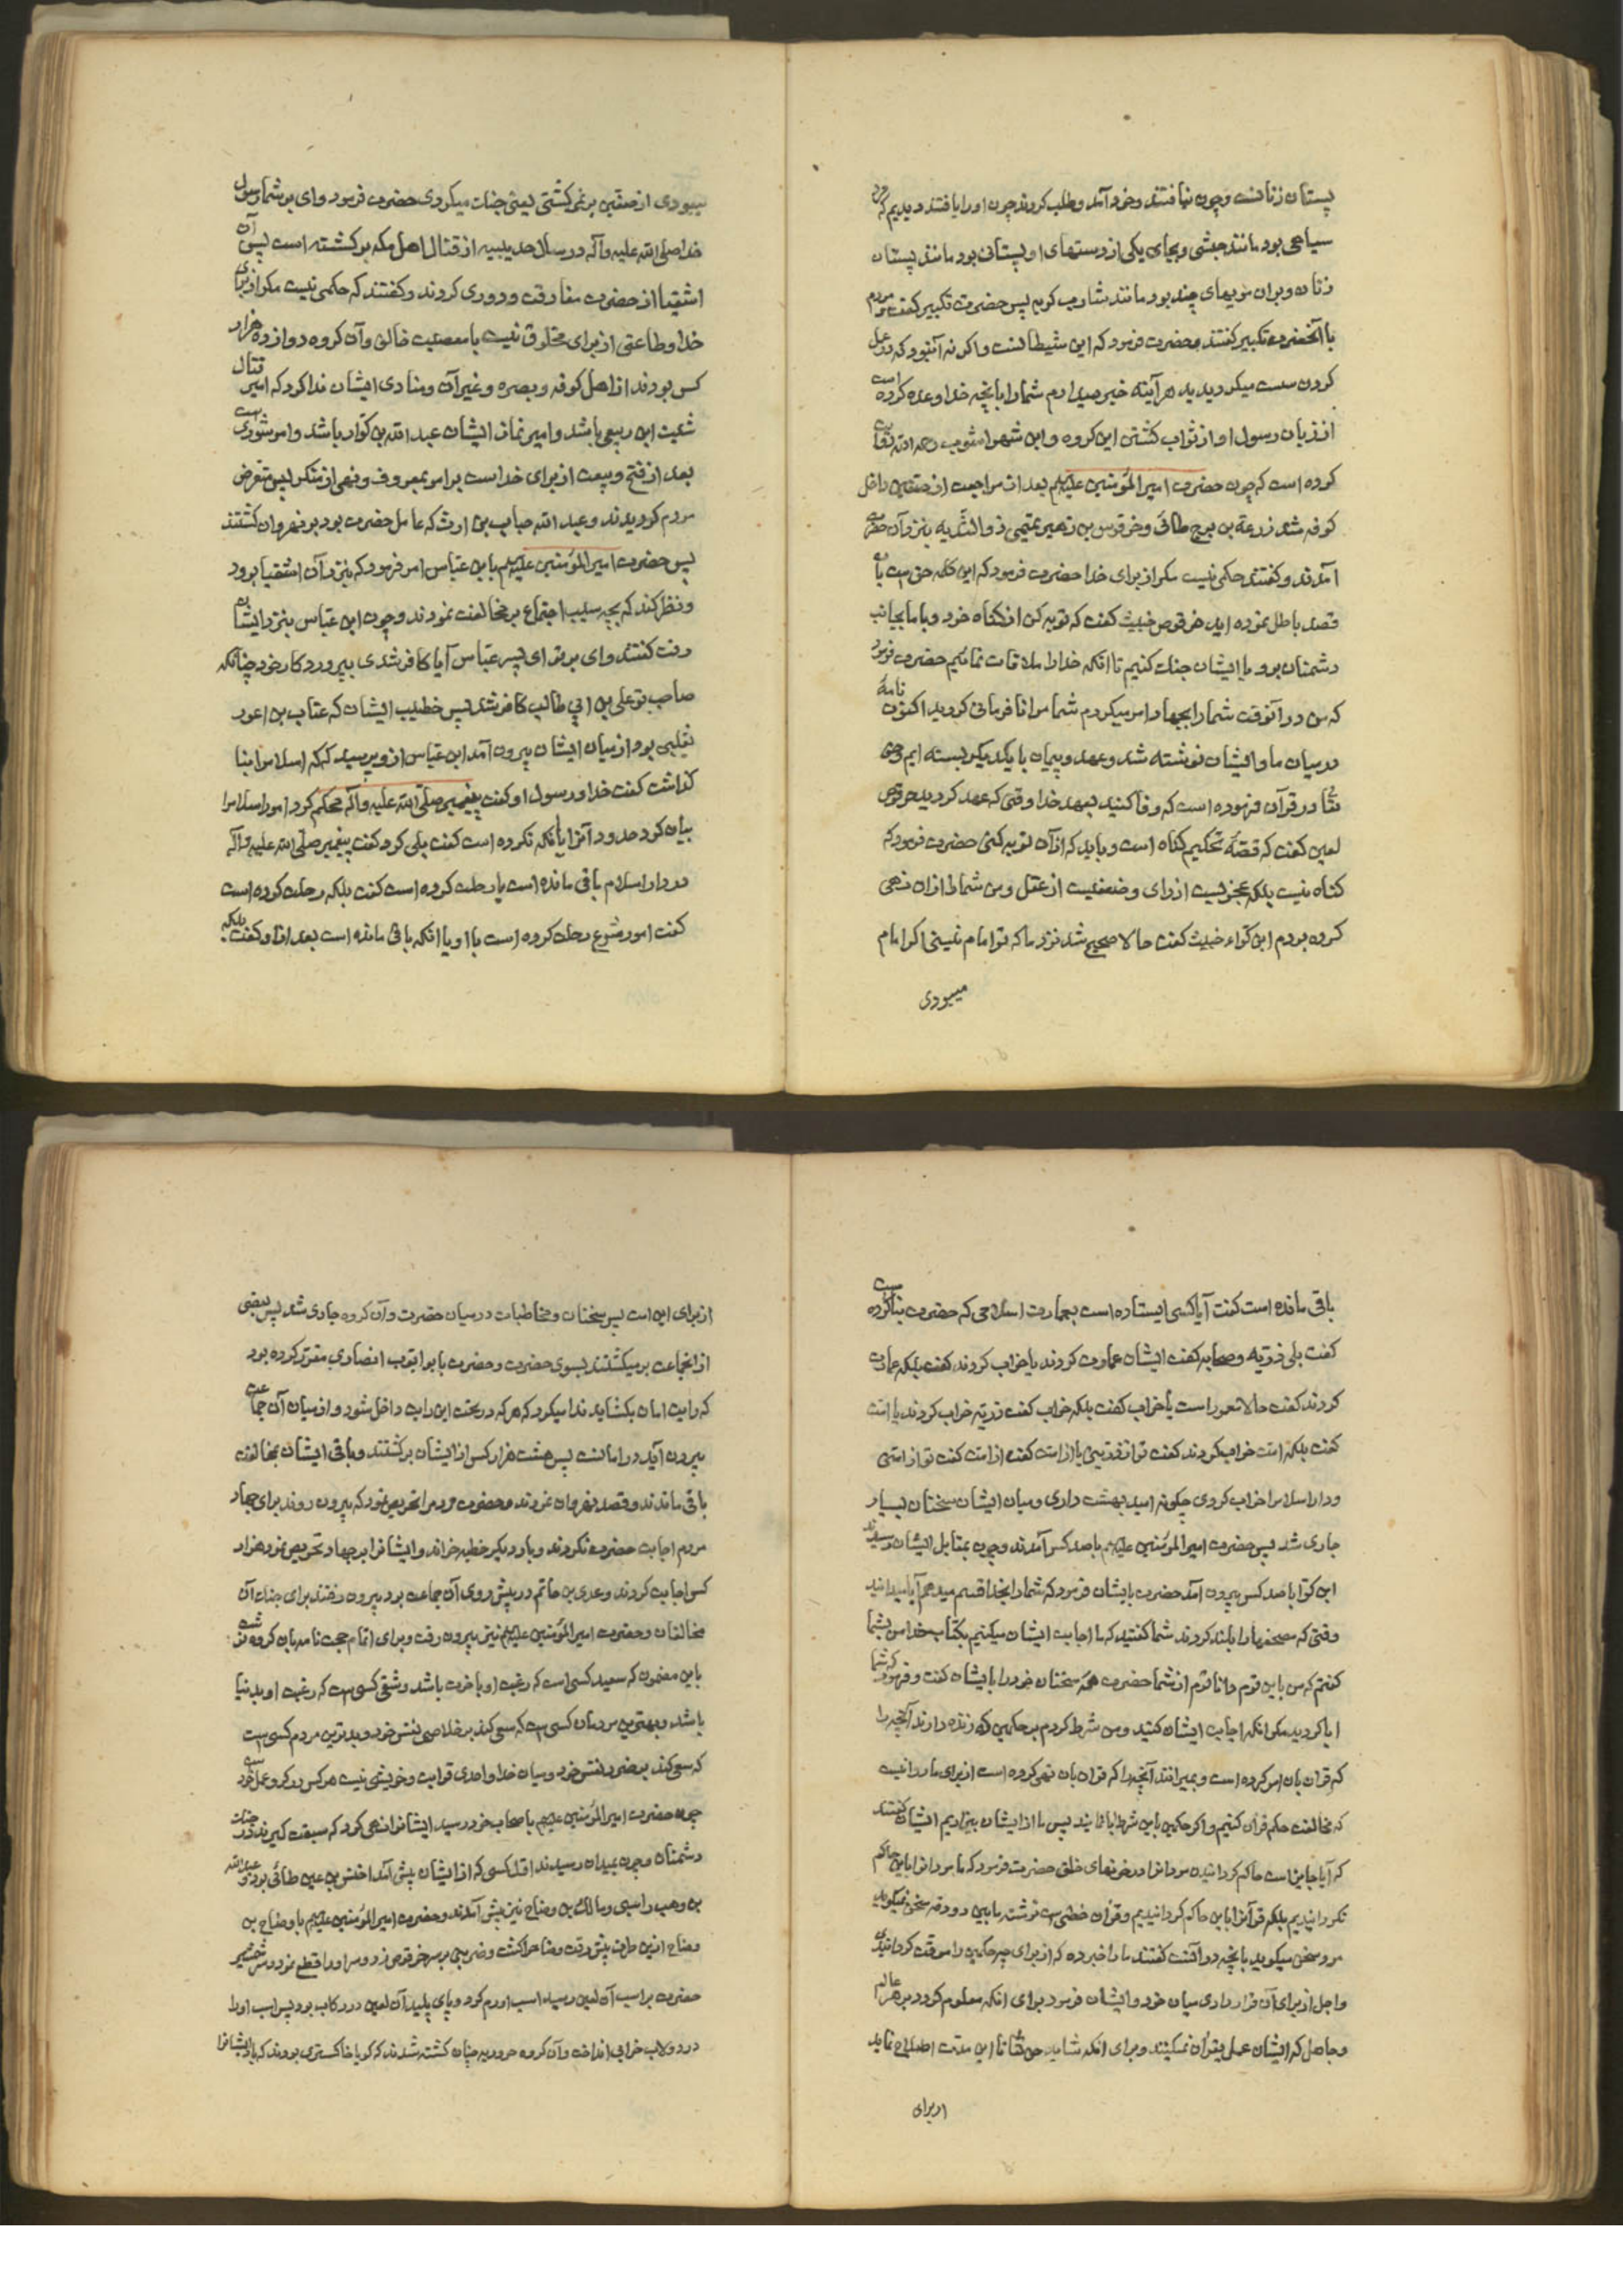 پستان زنانست وچون نیافتند وخود آمد وطلب کردند چون اورا یافتند دیدیم که مرد
سیاهی بود مانند حبشی وبجای یکی از دستهای او پستانی بود مانند پستان
زنان وبران مویهای چند بود مانند شارب کربه پس حضرت تکبیر کفت ومردم
با آنحضرت تکبیر کفتند وحضرت فرمود که این شیطانست واکر نه آن بود که در عمل
کردن سست میکردیدید هر آینه خبر میدادم شمارا بآنچه خدا وعده کرده است
از زبان رسول او از ثواب کشتن این کروه وابن شهراشوب رحمه الله روایت
کرده است که چون حضرت امیرالمؤمنین علیهم بعد از مراجعت از صفین داخل
کوفه شد زرعة بن برج طائی وخرقوص بن زهیر تمیمی ذوالثدیه بنزد آن حضرت
آمدند وکفتند حکمی نیست مکر از برای خدا حضرت فرمود که این کلمه حق است بآن
قصد باطل نموده اید خرقوص خبیث کفت که توبه کن از کناه خود وبا ما بجانب
دشمنان برو با ایشان جنک کنیم تا انکه خدا را ملاقات نمائیم حضرت فرمود
که من در آنوقت شمارا بجهاد امر میکردم شما مرا نافرمانی کردید اکنون نامهٔ
در میان ما وایشان نوشته شد وعهد وپیمان با یکدیکر بسته ایم وحق
تعا در قرآن فرموده است که وفا کنید بعهد خدا وقتی که عهد کردید حرقوص
لعین کفت که قصهٔ تحکیم کناه است وباید که از آن توبه کنی حضرت فرمود که
کناه نیست بلکه عجزیست از رای وضعفیست از عقل ومن شمارا ازان نهی
کرده بودم ابن کواء خبیث کفت حالا صحیح شد نزد ما که تو امام نیستی اکر امام
میبودی
میبودی از صفین بر نمی کشتی یعنی جنک میکردی حضرت فرمود وای بر شما رسول
خدا صلی الله علیه وآله در سال حدیبیه از قتال اهل مکه بر کشته است پس آن
اشقیا از حضرت مفارقت ودوری کردند وکفتند که حکمی نیست مکر از برای
خدا وطاعتی از برای مخلوق نیست با معصیت خالق وآن کروه دوازده هزار
کس بودند از اهل کوفه وبصره وغیر آن ومنادی ایشان ندا کرد که امیر قتال
شبث ابن ربعی باشد وامیر نماز ایشان عبد الله بن کوار باشد وامر شوری است
بعد از فتح وبیعت از برای خداست بر امر بمعروف ونهی از منکر پس متعرض
مردم کردیدند وعبد الله خباب بن ارث که عامل حضرت بود بر نهروان کشتند
پس حضرت امیرالمؤمنین علیهم بابن عباس امر فرمود که بنزد آن اشقیا برود
ونظر کند که بچه سبب اجتماع بر مخالفت نمودند وچون ابن عباس بنزد ایشان
رفت کفتند وای بر تو ای پسر عباس آیا کافر شدی بپروردکار خود چنانکه
صاحب تو علی بن ابی طالب کافر شد پس خطیب ایشان که عتاب بن اعور
ثعلبی بود از میان ایشان بیرون آمد ابن عباس از و پرسید که که اسلام را بنا
کذاشت کفت خدا ورسول او کفت پیغمبر صلی الله علیه وآله محکم کرد امور اسلام را
بیان کرد حدود آنرا یا نکه نکرده است کفت بلی کرد کفت پیغمبر صلی الله علیه وآله
در دار اسلام باقی مانده است یا رحلت کرده است کفت بلکه رحلت کرده است
کفت امور شرع رحلت کرده است با او یا انکه باقی مانده است بعد از او کفت بلکه
باقی مانده است کفت آیا کسی ایستاده است بعمارت اسلامی که حضرت بنا کرده است
کفت بلی ذریه وصحابه کفت ایشان عمارت کردند یا خراب کردند کفت بلکه عمارت
کردند کفت حالا معمور است یا خراب کفت بلکه خراب کفت ذریه خراب کردند یا امت
کفت بلکه امت خراب کردند کفت تو از ذریتی یا از امت کفت از امت کفت تو از امتی
ودار اسلام را خراب کردی چکونه امید بهشت داری ومیان ایشان سخنان بسیار
جاری شد پس حضرت امیرالمؤمنین علیهم با صد کس آمدند وچون بمقابل ایشان رسیدند
ابن کوا با صد کس بیرون آمد حضرت بایشان فرمود که شمارا بخدا قسم میدهم آیا میدانید
وقتی که مصحفها را بلند کردند شما کفتید که ما اجابت ایشان میکنیم بکتاب خدا من بشما
کفتم که من باین قوم داناترم از شما حضرت همهٔ سخنان خودرا بایشان کفت وفرمود که شما
ابا کردید مکر انکه اجابت ایشان کنید ومن شرط کردم بر حکمین که زنده دارند آنچه را
که قران بان امر کرده است وبمیرانند آنچه را که قران بان نهی کرده است از برای ما روا نیست
که مخالفت حکم قران کنیم واکر حکمین باین شرط ابا نمایند پس ما از ایشان بیزاریم ایشان کفتند
که آیا جایز است حاکم کردانیدن مردانرا در خونهای خلق حضرت فرمود که ما مردانرا باین حاکم
نکردانیدیم بلکه قرآنرا باین حاکم کردانیدیم وقرآن خطیست نوشته مابین دو دفه سخن نمیکوید
مرد سخن میکوید بآنچه در آنست کفتند مارا خبر ده که از برای چه حکمین را موقت کردانیدی
واجل از برای آن قرار دادی میان خود وایشان فرمود برای انکه معلوم کردد بر هر عالم
وجاهل که ایشان عمل بقرآن نمیکنند وبرای انکه شاید حق تعا تا این مدت اصلاح نماید
از برای
از برای این امت پس سخنان ومخاطبات در میان حضرت وآن کروه جاری شد پس بعضی
از انجماعت بر میکشتند بسوی حضرت وحضرت با بو ایوب انصاری مقرر کرده بود
که رایت امان بکشاید ندا میکرد که هر که در تحت این رایت داخل شود واز میان آن جماعت
بیرون آید در امانست پس هشت هزار کس از ایشان برکشتند وباقی ایشان بمخالفت
باقی ماندند وقصد نهروان نمودند وحضرت مردم را تحریص نمود که بیرون روند برای جهاد
مردم اجابت حضرت نکردند وبار دیکر خطبه خواند وایشانرا بر جهاد تحریص نمود هزار
کس اجابت کردند وعدی بن حاتم در پیش روی آن جماعت بود بیرون رفتند برای جنک آن
مخالفان وحضرت امیرالمؤمنین علیهم نیز بیرون رفت وبرای اتمام حجت نامه بان کروه نوشت
باین مضمون که سعید کسی است که رغبت او باخرت باشد وشقی کسی است که رغبت او بدنیا
باشد وبهترین مردمان کسی است که سعی کند بر خلاصی نفس خود وبدترین مردم کسی است
که سعی کند بضرر نفس خود ومیان خدا واحدی قرابت وخویشی نیست هر کس در کرو عمل خود است
چون حضرت امیرالمؤمنین علیهم باصحاب خود رسید ایشانرا نهی کرد که سبقت کیرند در جنک
دشمنان وچون بمیدان رسیدند اول کسی که از ایشان پیش آمد اخنس بن عین طائی بود وعبد الله
بن وهب راسبی ومالک بن وضاح نیز پیش آمدند وحضرت امیرالمؤمنین علیهم با وضاح بن
وضاح ازین طرف پیش رفت وضاحرا کشت وضربتی بر سر خرقوص زد وسر اورا قطع نمود وسر شمشیر
حضرت بر اسب آن لعین رسید اسب اورم کرد وپای پلید آن لعین در رکاب بود پس اسب اورا
در دولاب خرابی انداخت وآن کروه حروریه چنان کشته شدند که کویا خاکستری بودند که باد ایشانرا